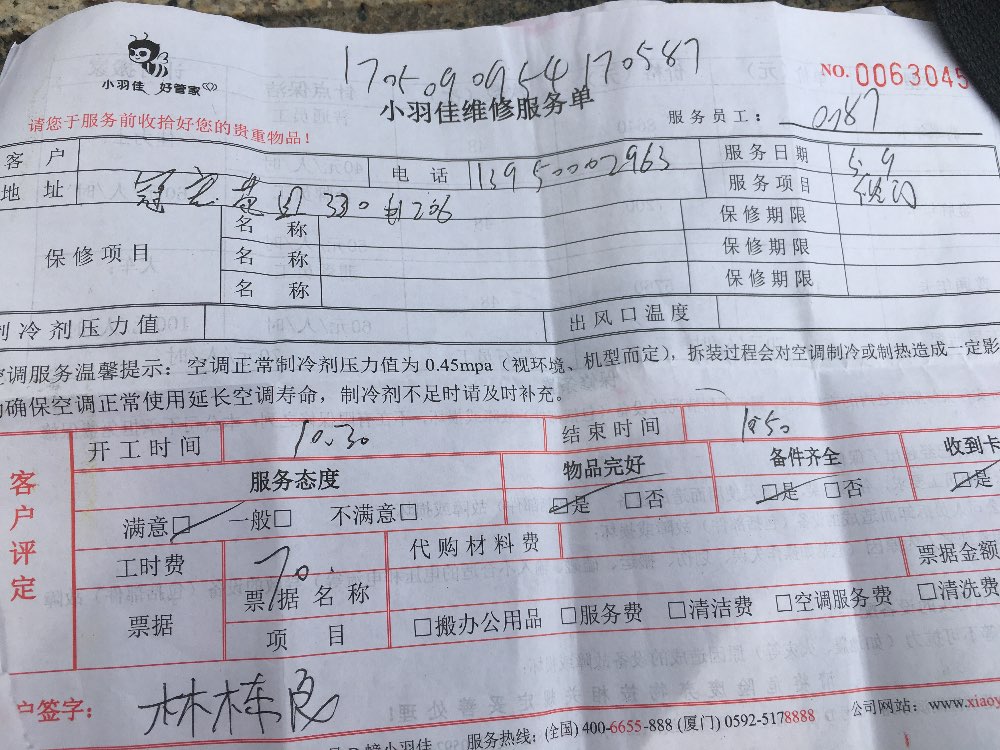 170509095417​0587
小羽佳 好管家
小羽佳维修服务单
NO. 0063045
请您于服务前收拾好您的贵重物品！
服务员工： 0187
客户 电话 13950002963 服务日期 5.9
地址 330 1206 服务项目
保修项目 名称 保修期限
名称 保修期限
名称 保修期限
制冷剂压力值 出风口温度
空调服务温馨提示：空调正常制冷剂压力值为 0.45mpa（视环境、机型而定），拆装过程会对空调制冷或制热造成一定影
确保空调正常使用延长空调寿命，制冷剂不足时请及时补充。
客户评定
开工时间 10.30 结束时间
服务态度 物品完好 备件齐全 收到卡
满意□ 一般□ 不满意□ □是 □否 □是 □否 □是
工时费 70. 代购材料费 票据金额
票据 票据名称 □搬办公用品 □服务费 □清洁费 □空调服务费 □清洗费
项目
户签字： 林栋良
小羽佳 服务热线：(全国) 400-6655-888 (厦门) 0592-5178888 公司网站：www.xiaoy